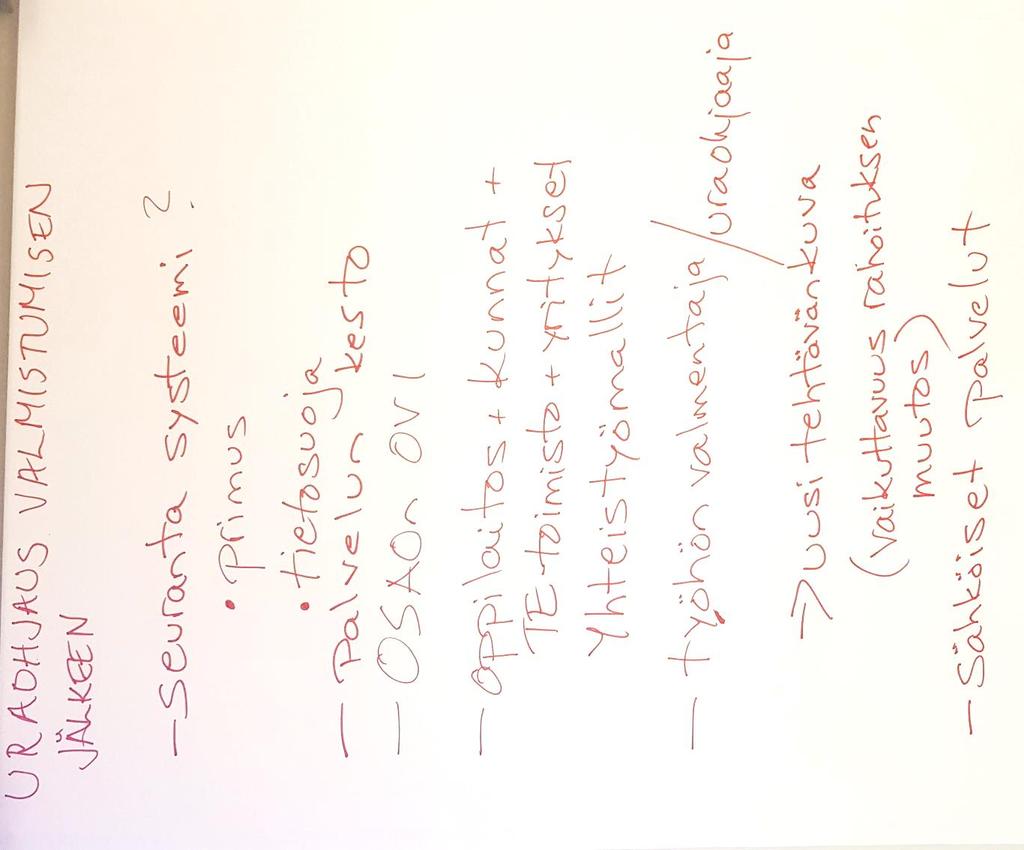 URAOHJAUS VALMISTUMISEN
JÄLKEEN
— seuranta systeemi ?
• primus
• tietosuoja
— palvelun kesto
— OSAOn OVI
— oppilaitos + kunnat +
TE-toimisto + yritykset
yhteistyömallit
— työhön valmentaja / uraohjaaja
> uusi tehtävänkuva
(vaikuttavuus rahoituksen
muutos)
— sähköiset palvelut